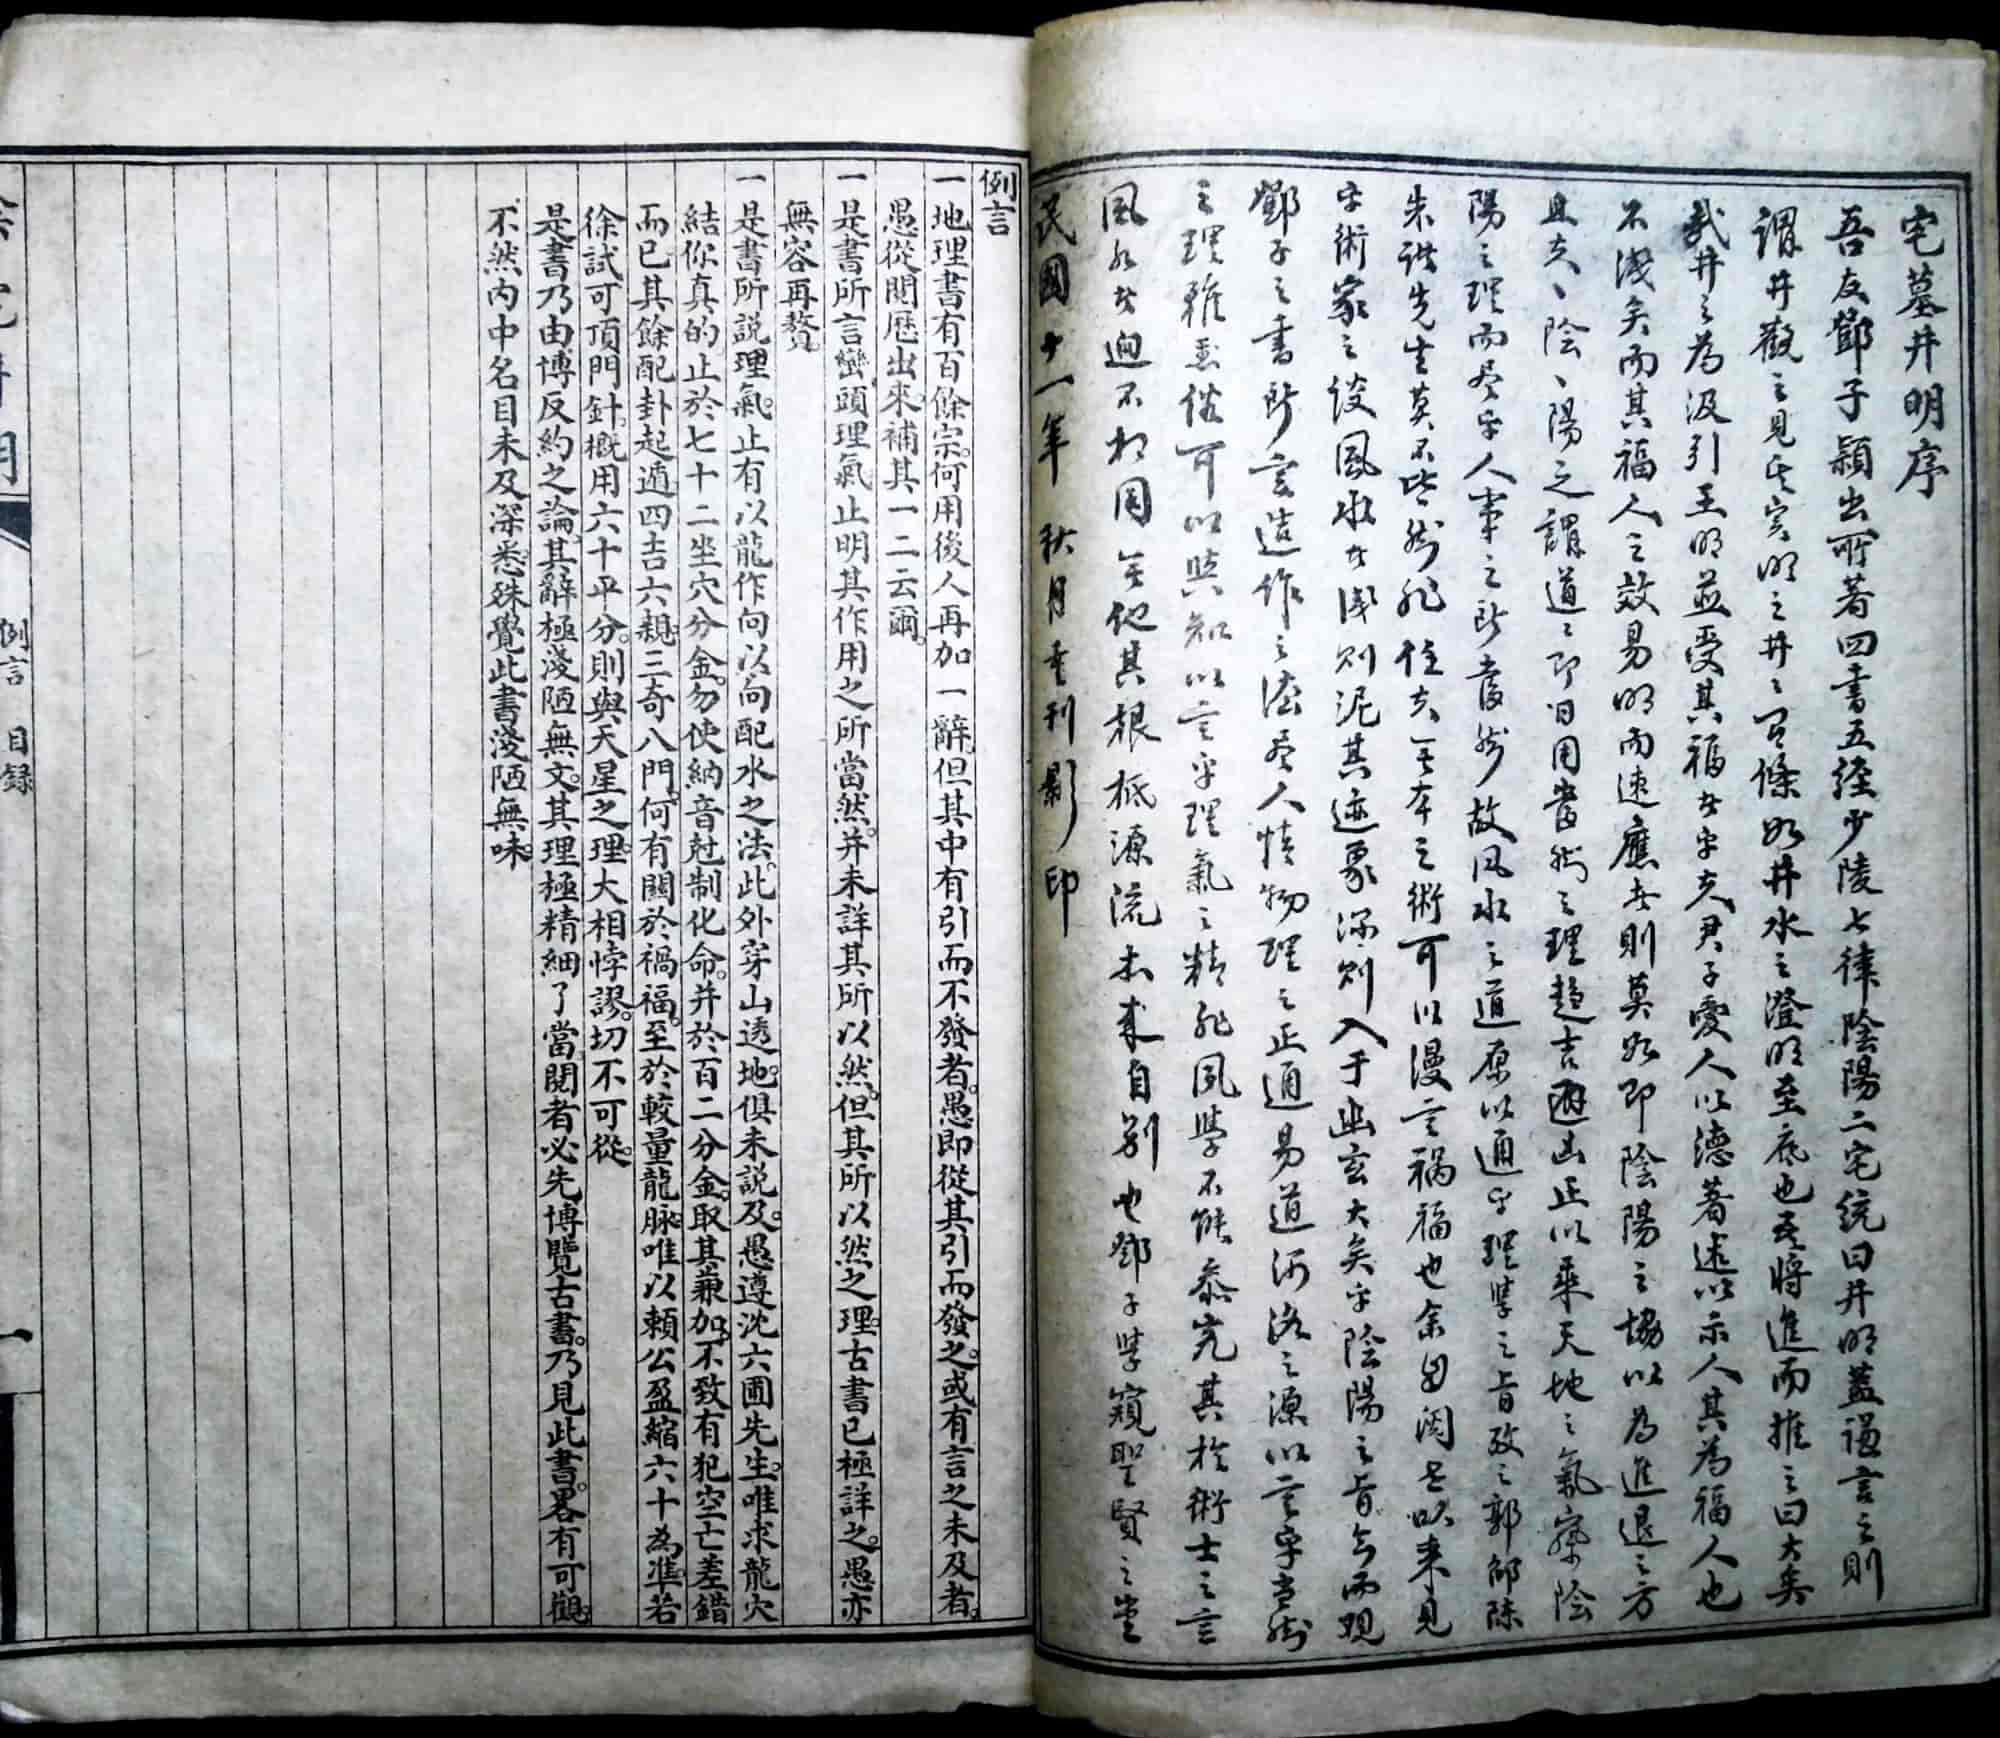 宅墓井明序
吾友鄧子穎出所著四書五經少陵七律陰陽二宅統曰井明蓋謙言之則
謂井觀之見其實明之井之有條如井水之澄明至底也吾將進而推之曰大矣
哉井之為汲引王明並受其福者乎夫君子愛人以德著述以示人其為福人也
不淺矣而其福人之效易明而速應者則莫如即陰陽之協以為進退之方
且夫一陰一陽之謂道道即日用當然之理趨吉避凶正以乘天地之氣察陰
陽之理而盡乎人事之所當然故風水之道原以通乎理學之旨攷之郭邵陳
朱諸先生莫不皆然非徒夫無本之術可以漫言禍福也余因閱古以來見
乎術家之談風水者淺則泥其迹象深則入于幽玄大矣乎陰陽之旨今而觀
鄧子之書所言造作之法盡人情物理之正通易道河洛之源以言乎當然
之理雖愚俗可以與知以言乎理氣之精非夙學不能參究其於術士之言
風水者迥不相同無他其根柢源流本來自別也鄧子學窺聖賢之堂
民國十一年 秋月重刊影印
例言
一地理書有百餘宗。何用後人再加一辭。但其中有引而不發者。愚即從其引而發之。或有言之未及者。
愚從閱歷出來。補其一二云爾。
一是書所言巒頭理氣。止明其作用之所當然。并未詳其所以然。但其所以然之理。古書已極詳之。愚亦
無容再贅。
一是書所說理氣。止有以龍作向。以向配水之法。此外穿山透地。俱未說及。愚遵沈六圃先生。唯求龍穴
結你真的。止於七十二坐穴分金。勿使納音尅制化命。并於百二分金。取其兼加。不致有犯空亡差錯
而已。其餘配卦起遁。四吉六親。三奇八門。何有關於禍福。至於較量龍脉。唯以賴公盈縮六十為準。若
徐試可頂門針。概用六十平分。則與天星之理。大相悖謬。切不可從。
是書乃由博反約之論。其辭極淺陋無文。其理極精細了當。閱者必先博覽古書。乃見此書。畧有可觀。
不然。內中名目未及深悉。殊覺此書淺陋無味。
例言 目錄
一